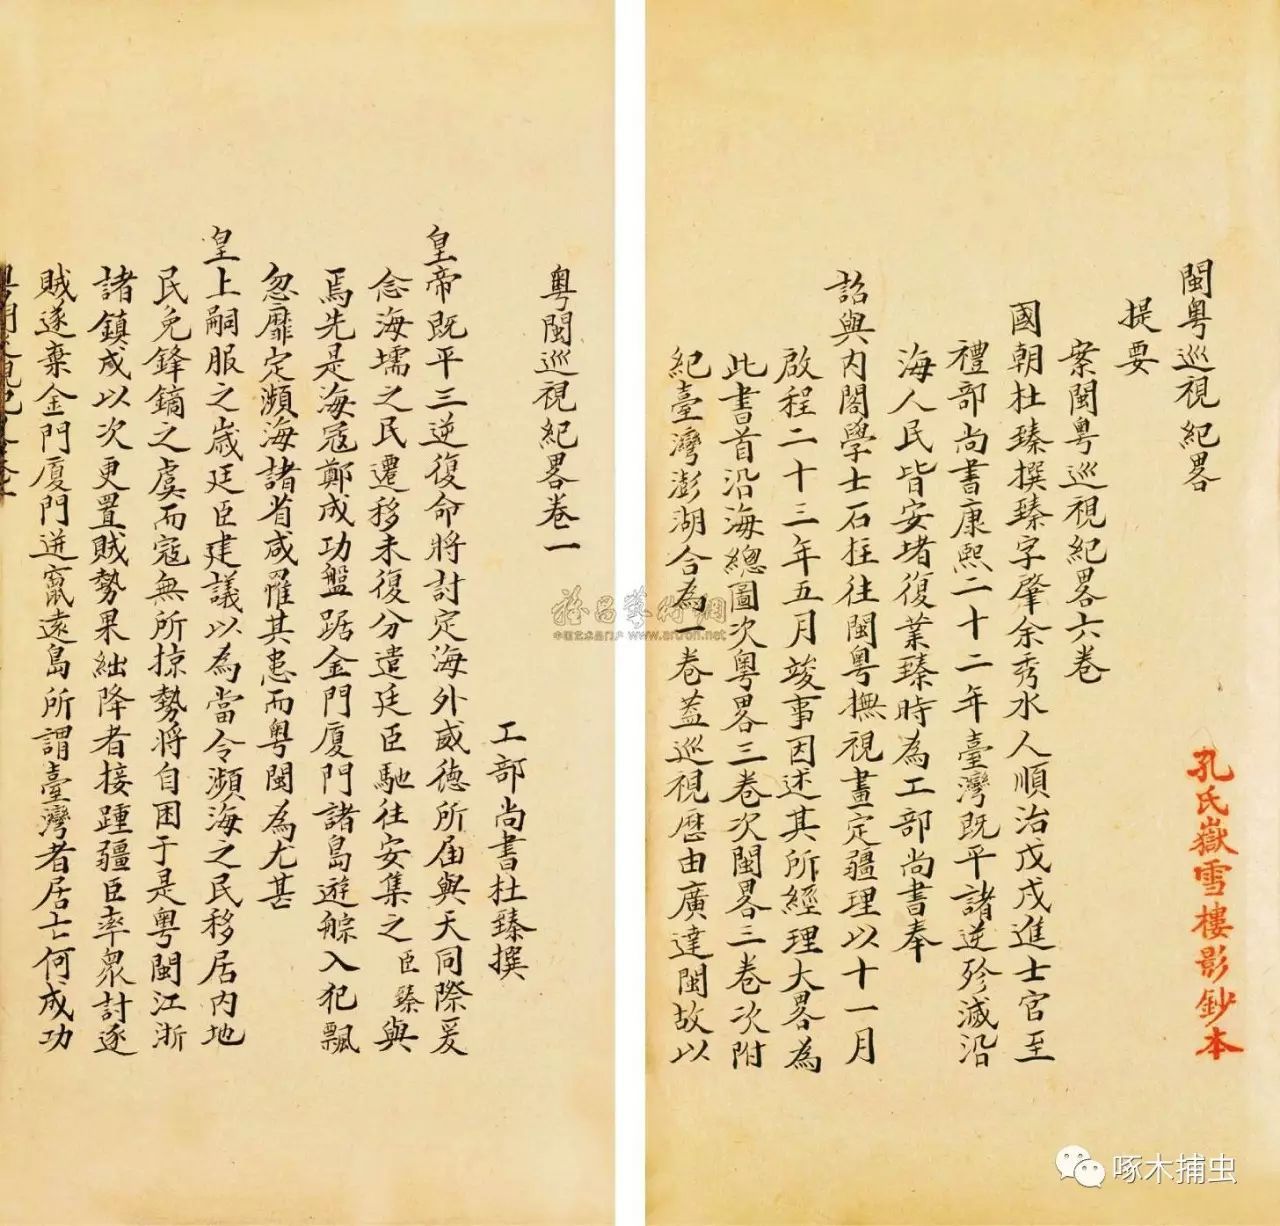 閩粤巡視紀畧
提要
案閩粤巡視紀畧六卷
國朝杜臻撰臻字肇余秀水人順治戊戌進士官至
禮部尚書康熙二十二年臺灣既平諸逆殄滅沿
海人民皆安堵復業臻時為工部尚書奉
詔與内閣學士石柱往閩粤撫視畫定疆理以十一月
啟程二十三年五月竣事因述其所經理大畧為
此書首沿海總圖次粤畧三卷次閩畧三卷次附
紀臺灣澎湖合為一卷蓋巡視歷由廣達閩故以
孔氏嶽雪樓影鈔本
粤閩巡視紀畧卷一
工部尚書杜臻撰
皇帝既平三逆復命將討定海外威德所届與天同際爰
念海壖之民遷移未復分遣廷臣馳往安集之臣臻與
焉先是海寇鄭成功盤踞金門厦門諸島遊䑸入犯飄
忽靡定瀕海諸省咸罹其患而粤閩為尤甚
皇上嗣服之歲廷臣建議以為當令瀕海之民移居内地
民免鋒鏑之虞而寇無所掠勢將自困于是粤閩江浙
諸鎮戍以次更置賊勢果絀降者接踵疆臣率衆討逐
賊遂棄金門厦門逆竄遠島所謂臺灣者居亡何成功
中国艺术品门户 www.artron.net
啄木捕虫